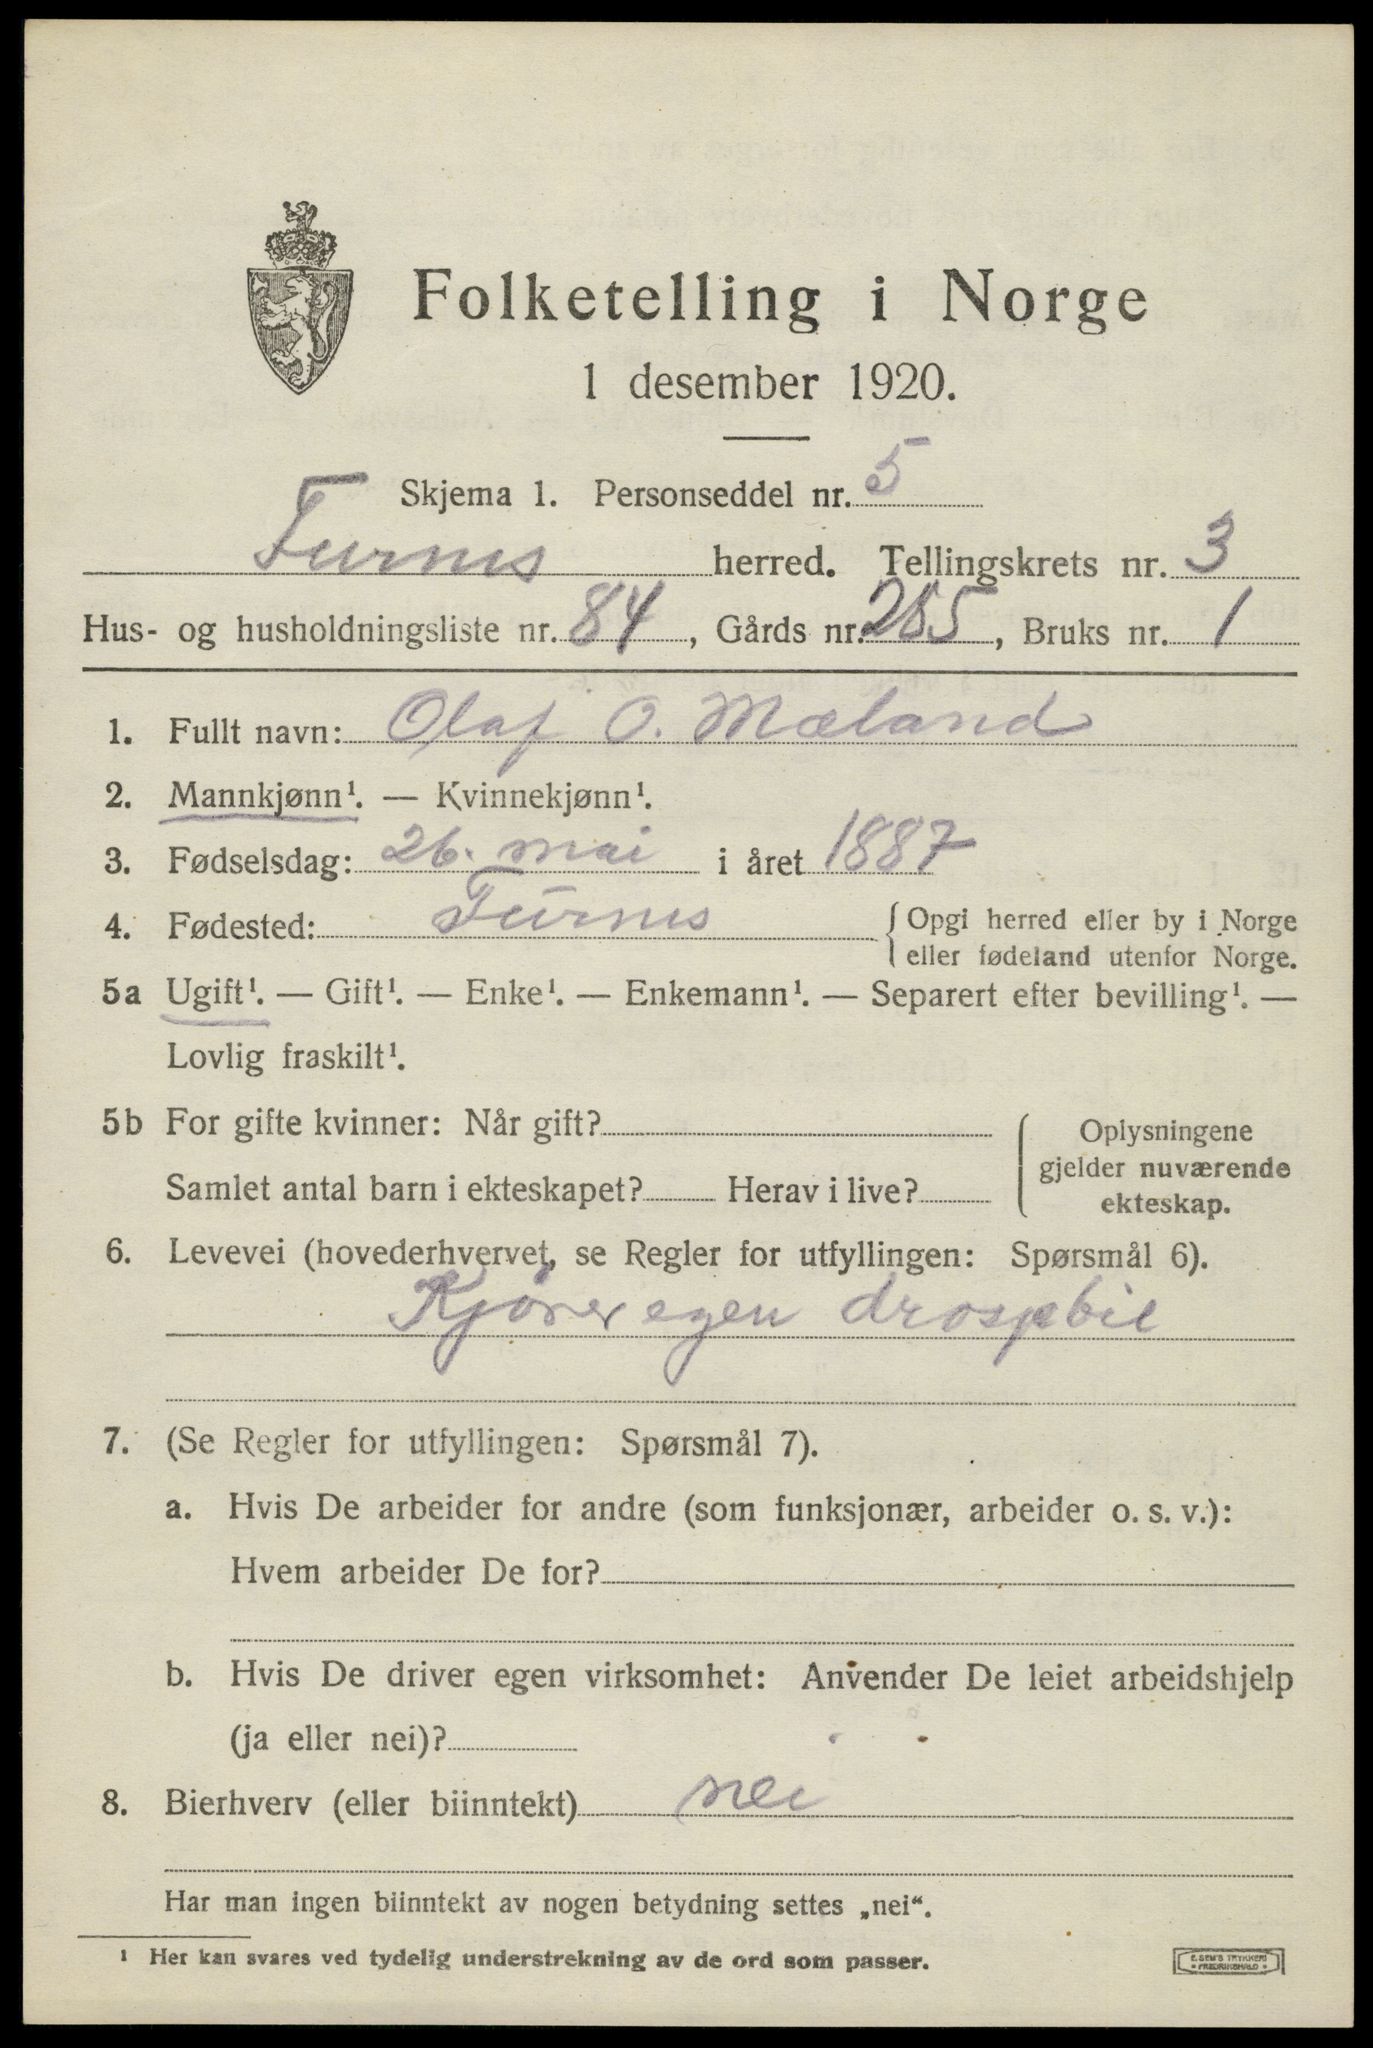 Folketelling i Norge
1 desember 1920.
Skjema 1. Personseddel nr. 5
Furnes herred. Tellingskrets nr. 3
Hus- og husholdningsliste nr. 84, Gårds nr. 255, Bruks nr. 1
1. Fullt navn: Olaf O. Mæland
2. Mannkjønn¹. — Kvinnekjønn¹.
3. Fødselsdag: 26. mai i året 1887
4. Fødested: Furnes { Opgi herred eller by i Norge
eller fødeland utenfor Norge.
5a Ugift¹. — Gift¹. — Enke¹. — Enkemann¹. — Separert efter bevilling¹. —
Lovlig fraskilt¹.
5b For gifte kvinner: Når gift?
Samlet antal barn i ekteskapet? Herav i live?
Oplysningene
gjelder nuværende
ekteskap.
6. Levevei (hovederhvervet, se Regler for utfyllingen: Spørsmål 6).
Kjører egen drospebil
7. (Se Regler for utfyllingen: Spørsmål 7).
a. Hvis De arbeider for andre (som funksjonær, arbeider o. s. v.):
Hvem arbeider De for?
b. Hvis De driver egen virksomhet: Anvender De leiet arbeidshjelp
(ja eller nei)?
8. Bierhverv (eller biinntekt) nei
Har man ingen biinntekt av nogen betydning settes „nei“.
¹ Her kan svares ved tydelig understrekning av de ord som passer.
E. SEM'S TRYKKERI
• FREDRIKSHALD •